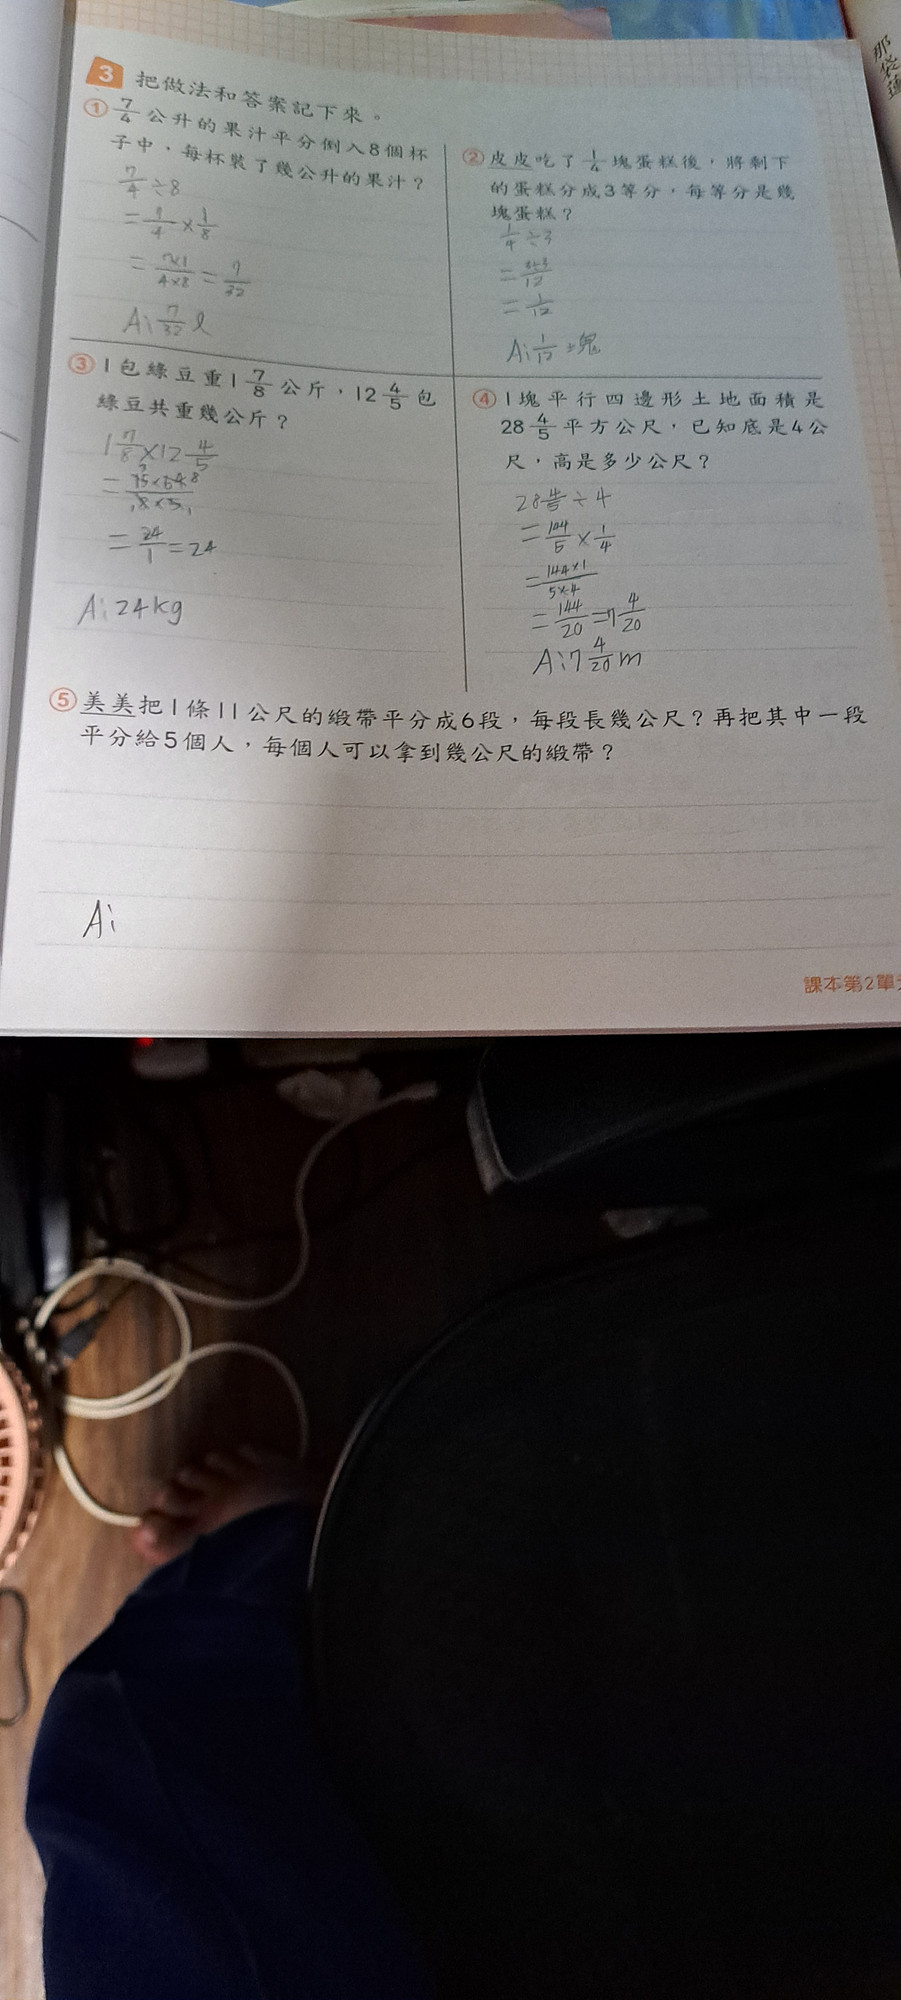 3 把做法和答案記下來。
① 7/4 公升的果汁平分倒入8個杯
子中，每杯裝了幾公升的果汁？
7/4÷8
=7/4×1/8
=7×1/4×8=7/32
A:7/32 l
② 皮皮吃了 1/4 塊蛋糕後，將剩下
的蛋糕分成3等分，每等分是幾
塊蛋糕？
1/4÷3
=1/12
A:1/12塊
③ 1包綠豆重1 7/8 公斤，12 4/5 包
綠豆共重幾公斤？
1 7/8×12 4/5
=15×64/8×5
=24/1=24
A:24kg
④ 1塊平行四邊形土地面積是
28 4/5 平方公尺，已知底是4公
尺，高是多少公尺？
28 4/5÷4
=144/5×1/4
=144×1/5×4
=144/20=7 4/20
A:7 4/20 m
⑤ 美美把1條11公尺的緞帶平分成6段，每段長幾公尺？再把其中一段
平分給5個人，每個人可以拿到幾公尺的緞帶？
A:
課本第2單
那
袋